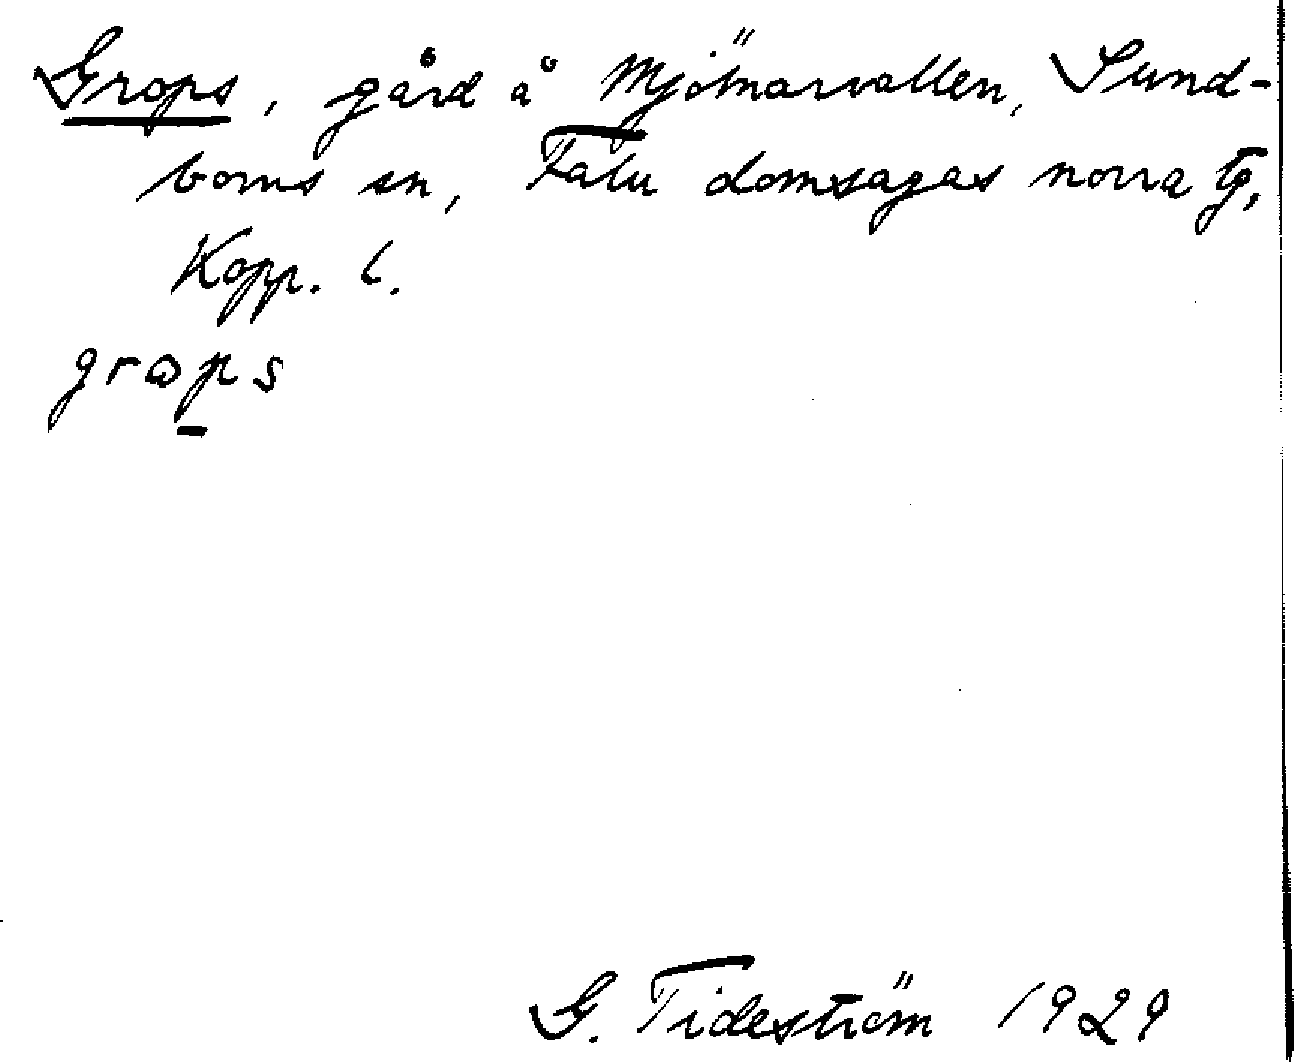 Grops, gård å Mjölnarvallen, Sund-
borns sn, Falu domsagas norra tg,
Kopp. l.
grops
G. Tideström 1929